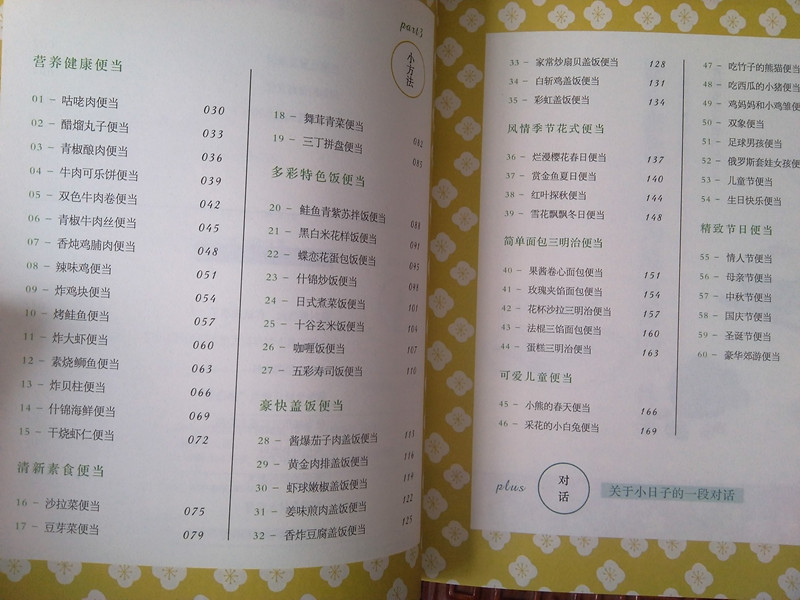 营养健康便当
01 - 咕咾肉便当 030
02 - 醋熘丸子便当 033
03 - 青椒酿肉便当 036
04 - 牛肉可乐饼便当 039
05 - 双色牛肉卷便当 042
06 - 青椒牛肉丝便当 045
07 - 香炖鸡脯肉便当 048
08 - 辣味鸡便当 051
09 - 炸鸡块便当 054
10 - 烤鲑鱼便当 057
11 - 炸大虾便当 060
12 - 素烧鲫鱼便当 063
13 - 炸贝柱便当 066
14 - 什锦海鲜便当 069
15 - 干烧虾仁便当 072
清新素食便当
16 - 沙拉菜便当 075
17 - 豆芽菜便当 079
part3
小方法
18 - 舞茸青菜便当 082
19 - 三丁拼盘便当 085
多彩特色饭便当
20 - 鲑鱼青紫苏拌饭便当 088
21 - 黑白米花样饭便当 091
22 - 蝶恋花蛋包饭便当 095
23 - 什锦炒饭便当 098
24 - 日式煮菜饭便当 101
25 - 十谷玄米饭便当 104
26 - 咖喱饭便当 107
27 - 五彩寿司饭便当 110
豪快盖饭便当
28 - 酱爆茄子肉盖饭便当 113
29 - 黄金肉排盖饭便当 116
30 - 虾球嫩椒盖饭便当 119
31 - 姜味煎肉盖饭便当 122
32 - 香炸豆腐盖饭便当 125
33 - 家常炒扇贝盖饭便当 128
34 - 白斩鸡盖饭便当 131
35 - 彩虹盖饭便当 134
风情季节花式便当
36 - 烂漫樱花春日便当 137
37 - 赏金鱼夏日便当 140
38 - 红叶探秋便当 144
39 - 雪花飘飘冬日便当 148
简单面包三明治便当
40 - 果酱卷心面包便当 151
41 - 玫瑰夹馅面包便当 154
42 - 花杯沙拉三明治便当 157
43 - 法棍三馅面包便当 160
44 - 蛋糕三明治便当 163
可爱儿童便当
45 - 小熊的春天便当 166
46 - 采花的小白兔便当 169
47 - 吃竹子的熊猫便当
48 - 吃西瓜的小猪便当
49 - 鸡妈妈和小鸡雏
50 - 双象便当
51 - 足球男孩便当
52 - 俄罗斯套娃女孩便
53 - 儿童节便当
54 - 生日快乐便当
精致节日便当
55 - 情人节便当
56 - 母亲节便当
57 - 中秋节便当
58 - 国庆节便当
59 - 圣诞节便当
60 - 豪华郊游便当
plus 对话 关于小日子的一段对话